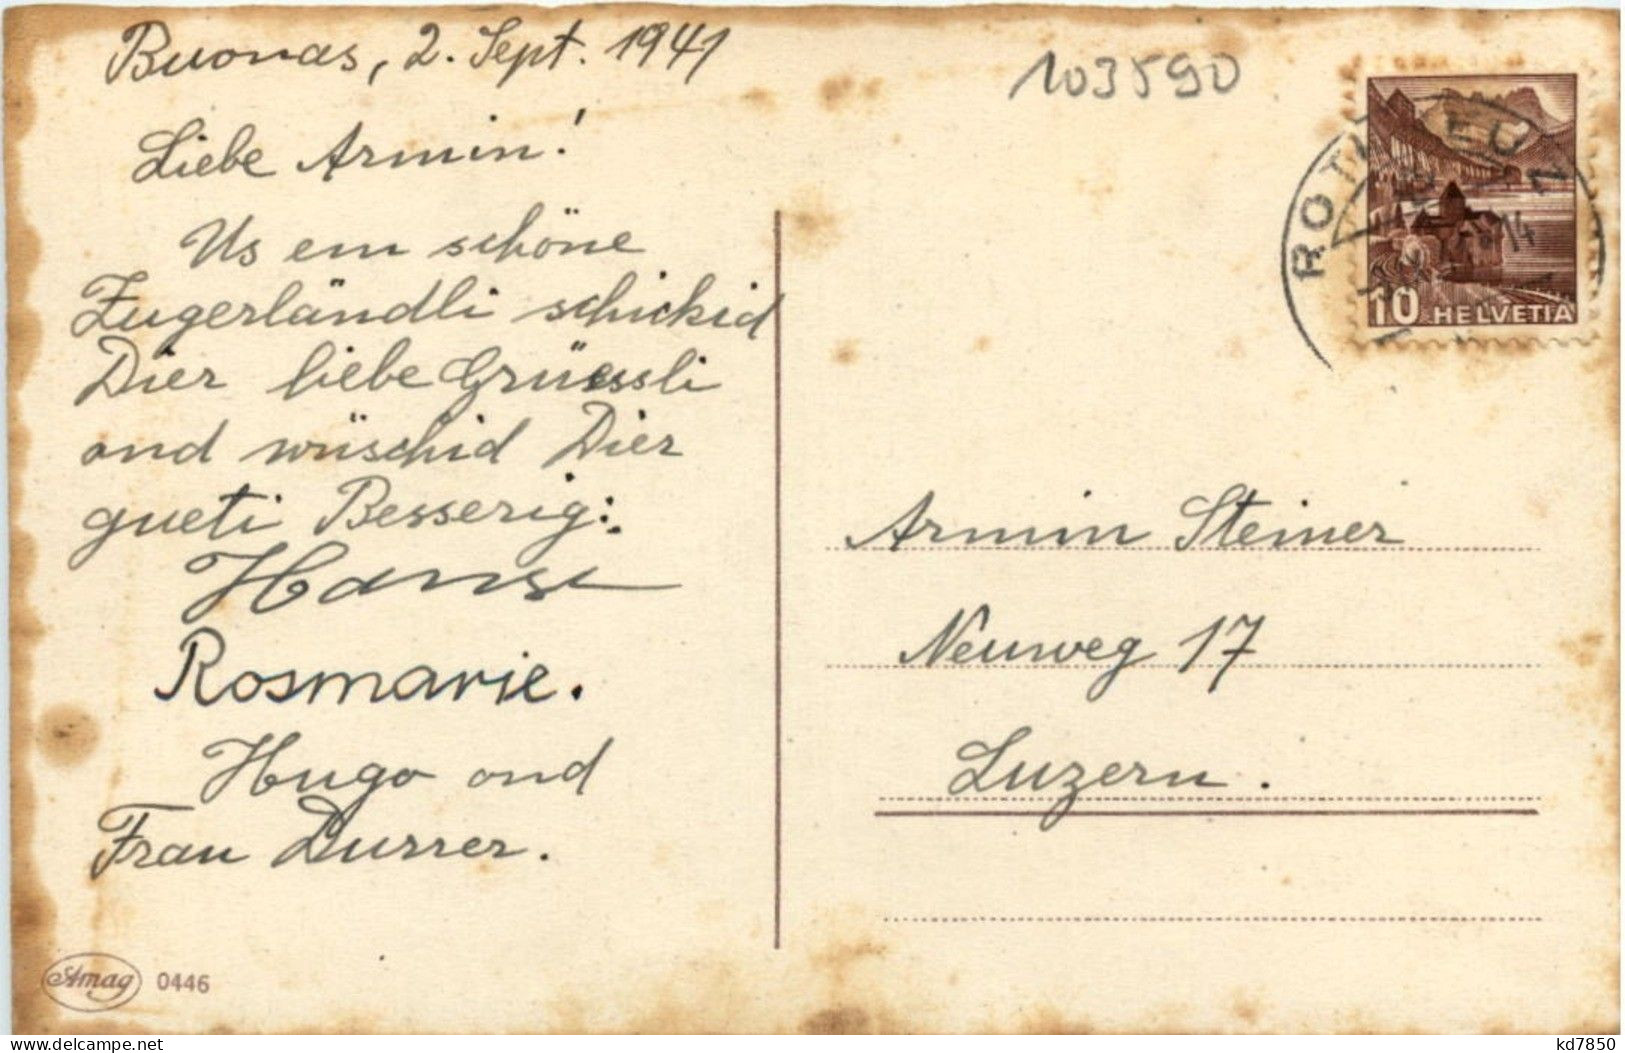 Buonas, 2. Sept. 1941
Liebe Armin!
Us em schöne
Zugerländli schickid
Dier liebe Grüessli
ond wüschid Dier
gueti Besserig:
Hansi
Rosmarie.
Hugo ond
Frau Durrer.
Amag 0446
103590
ROTKREUZ
14
10 HELVETIA
Armin Steiner
Neuweg 17
Luzern.
delcampe.net
kd7850